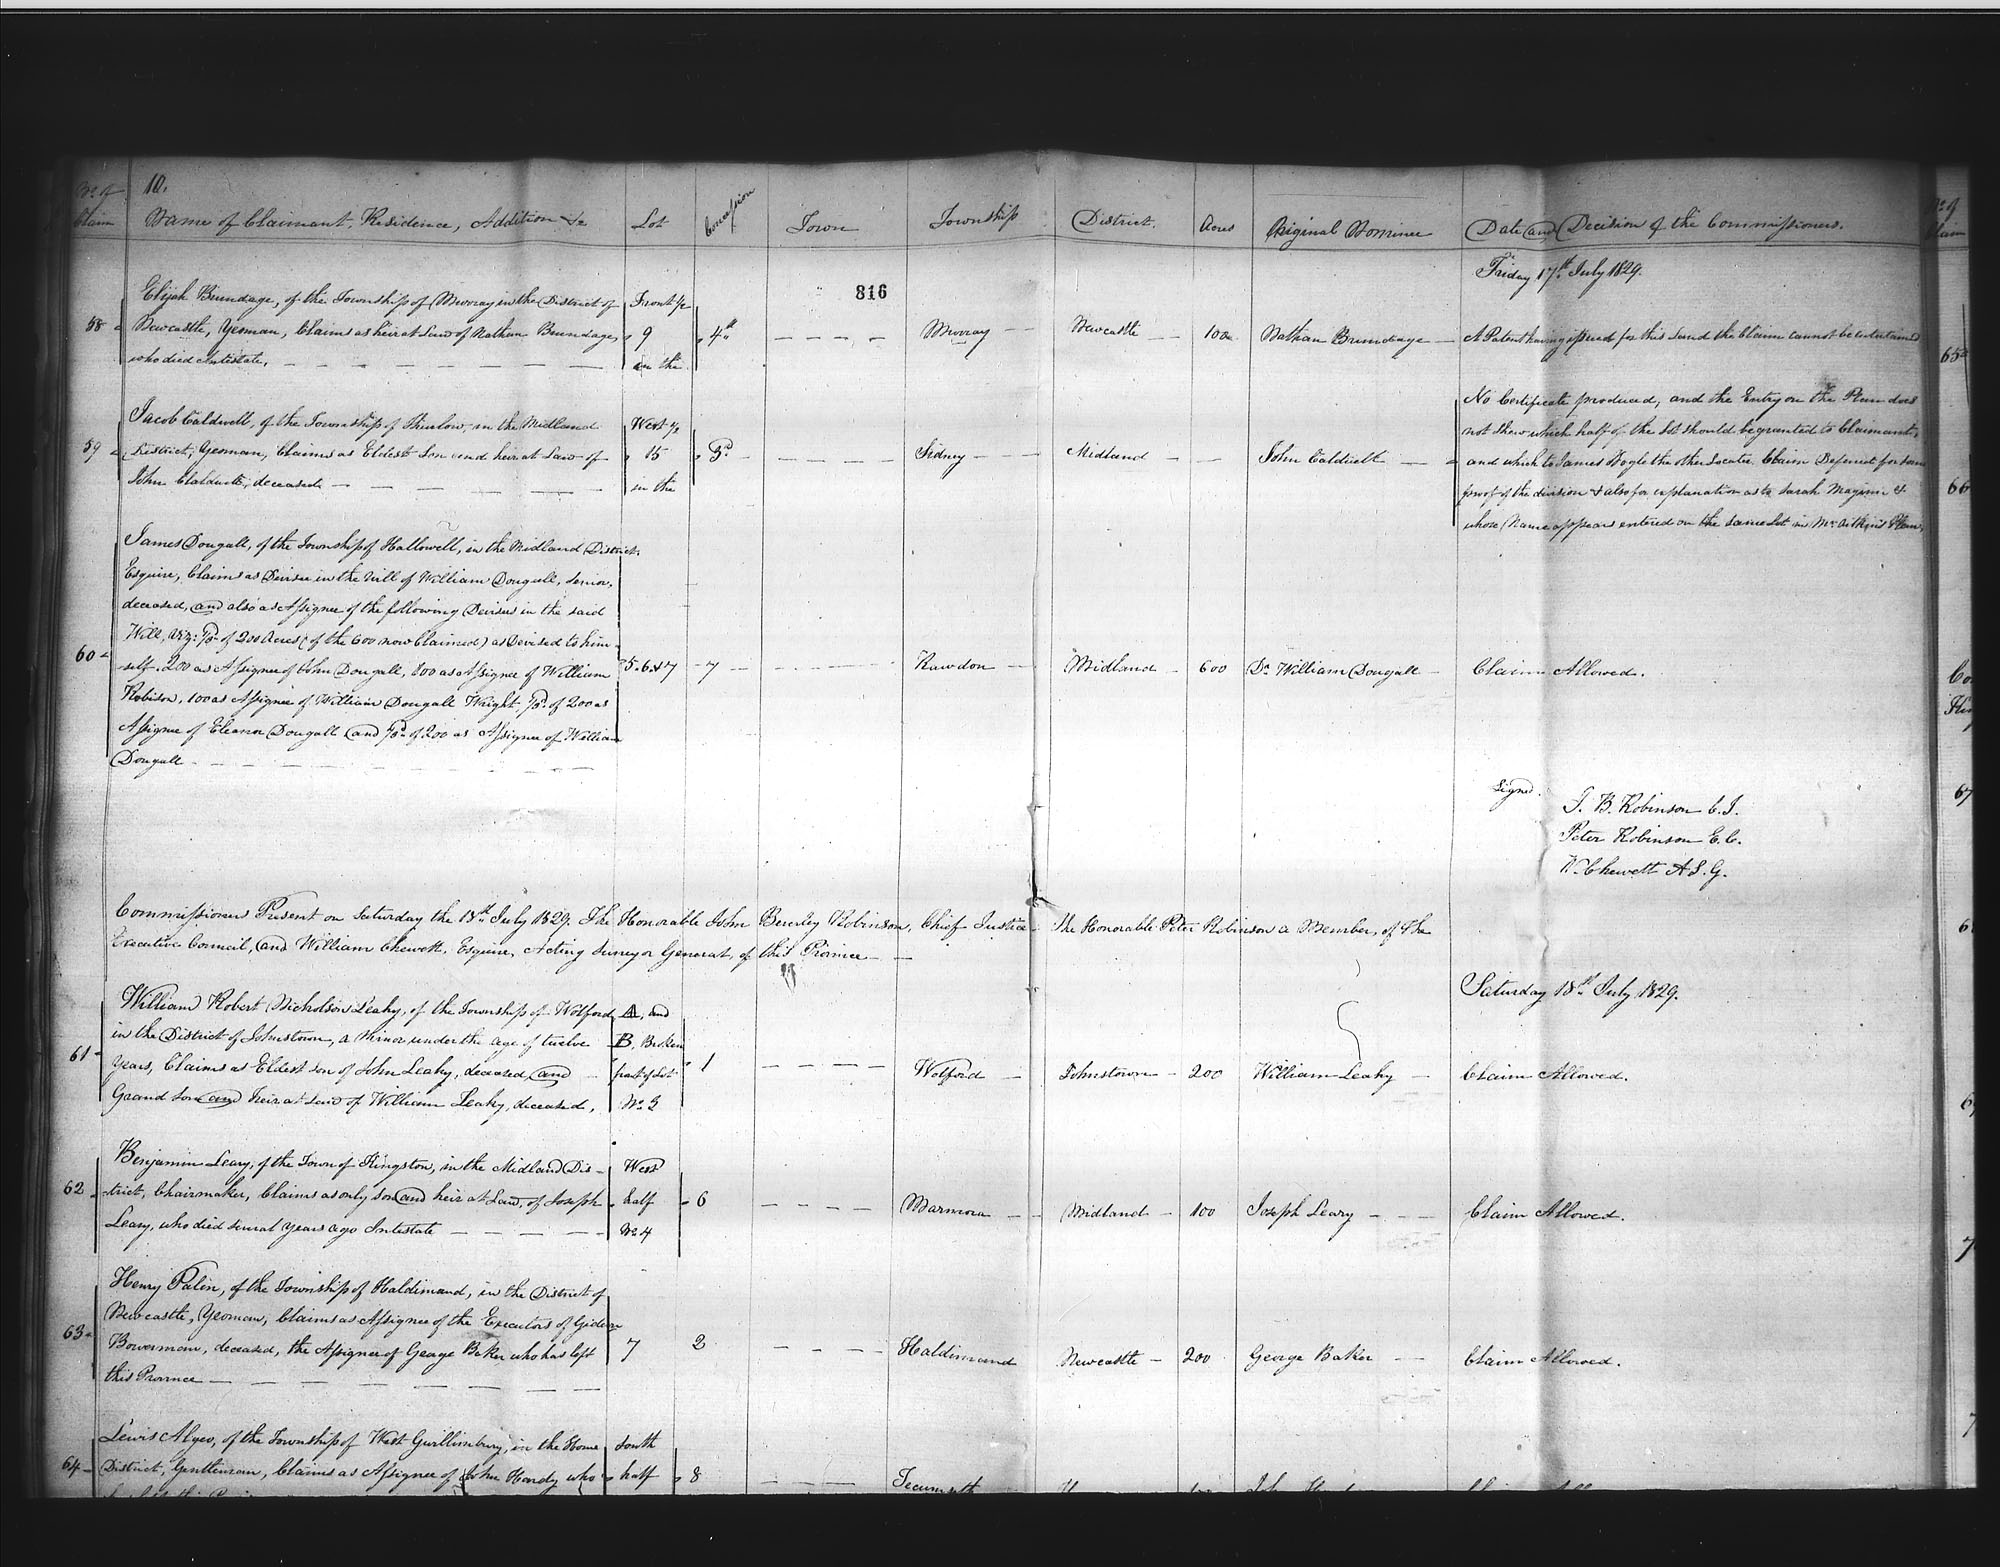 No. of Claim
10.
Name of Claimant, Residence, Addition &c
Lot
Concession
Town
Township
District.
Acres
Original Nominee
Date and Decision of the Commissioners.
816
Friday 17th July 1829.
58
Elijah Brundage, of the Township of Murray in the District of
Newcastle, Yeoman, Claims as heir at Law of Nathan Brundage,
who died Intestate,
Front 1/2
9
in the
4th
Murray
Newcastle
100
Nathan Brundage
A Patent having issued for this Land the Claim cannot be entertained
59
Jacob Caldwell, of the Township of Thurlow, in the Midland
District, Yeoman, Claims as Eldest Son and heir at Law of
John Caldwell, deceased
West 1/2
15
in the
3d
Sidney
Midland
John Caldwell
No Certificate produced, and the Entry on the Plan does
not shew which half of the Lot should be granted to Claimant,
and which to James Hogle the other Locatee. Claim Deferred for some
proof of the division & also for explanation as to Sarah
whose Name appears entered on the same Lot in Mr. Aitkin's Plan.
60
James Dougall, of the Township of Hallowell, in the Midland District.
Esquire, Claims as Devisee in the Will of William Dougall, Senior,
deceased, and also as Assignee of the following Devisees in the said
Will, Viz: 1/3d of 200 Acres (of the 600 now Claimed) as Devised to him-
self. 200 as Assignee of John Dougall, 100 as Assignee of William
Robison, 100 as Assignee of William Dougall Wright, 1/3d of 200 as
Assignee of Eleanor Dougall and 1/3d of 200 as Assignee of William
Dougall
5. 6. & 7
7
Rawdon
Midland
600
Dr. William Dougall
Claim Allowed.
Signed.
J. B. Robinson C. J.
Peter Robinson E. C.
W. Chewett A S. G.
Commissioners Present on Saturday the 18th July 1829. The Honorable John Beverley Robinson, Chief Justice The Honorable Peter Robinson a Member, of the
Executive Council, and William Chewett, Esquire, Acting Surveyor General, of this Province
Saturday 18th July 1829.
61
William Robert Nicholson Leahy, of the Township of Wolford
in the District of Johnstown, a Minor under the age of twelve
Years, Claims as Eldest son of John Leahy, deceased, and
Grand son and heir at Law of William Leahy, deceased,
A, and
B, Broken
part of Lot
No. 3
1
Wolford
Johnstown
200
William Leahy
Claim Allowed.
62
Benjamin Leary, of the Town of Kingston, in the Midland Dis-
trict, Chairmaker, Claims as only son and heir at Law, of Joseph
Leary, who died several Years ago Intestate
West
half
No. 4
6
Marmora
Midland
100
Joseph Leary
Claim Allowed.
63
Henry Palin, of the Township of Haldimand, in the District of
Newcastle, Yeoman, Claims as Assignee of the Executors of Gideon
Bowerman, deceased, the Assignee of George Baker who has left
this Province
7
2
Haldimand
Newcastle
200
George Baker
Claim Allowed.
64
Lewis Algeo, of the Township of West Gwillimbury, in the Home
District, Gentleman, Claims as Assignee of John Hardy who
South
half
8
Tecumseth
65
66
67